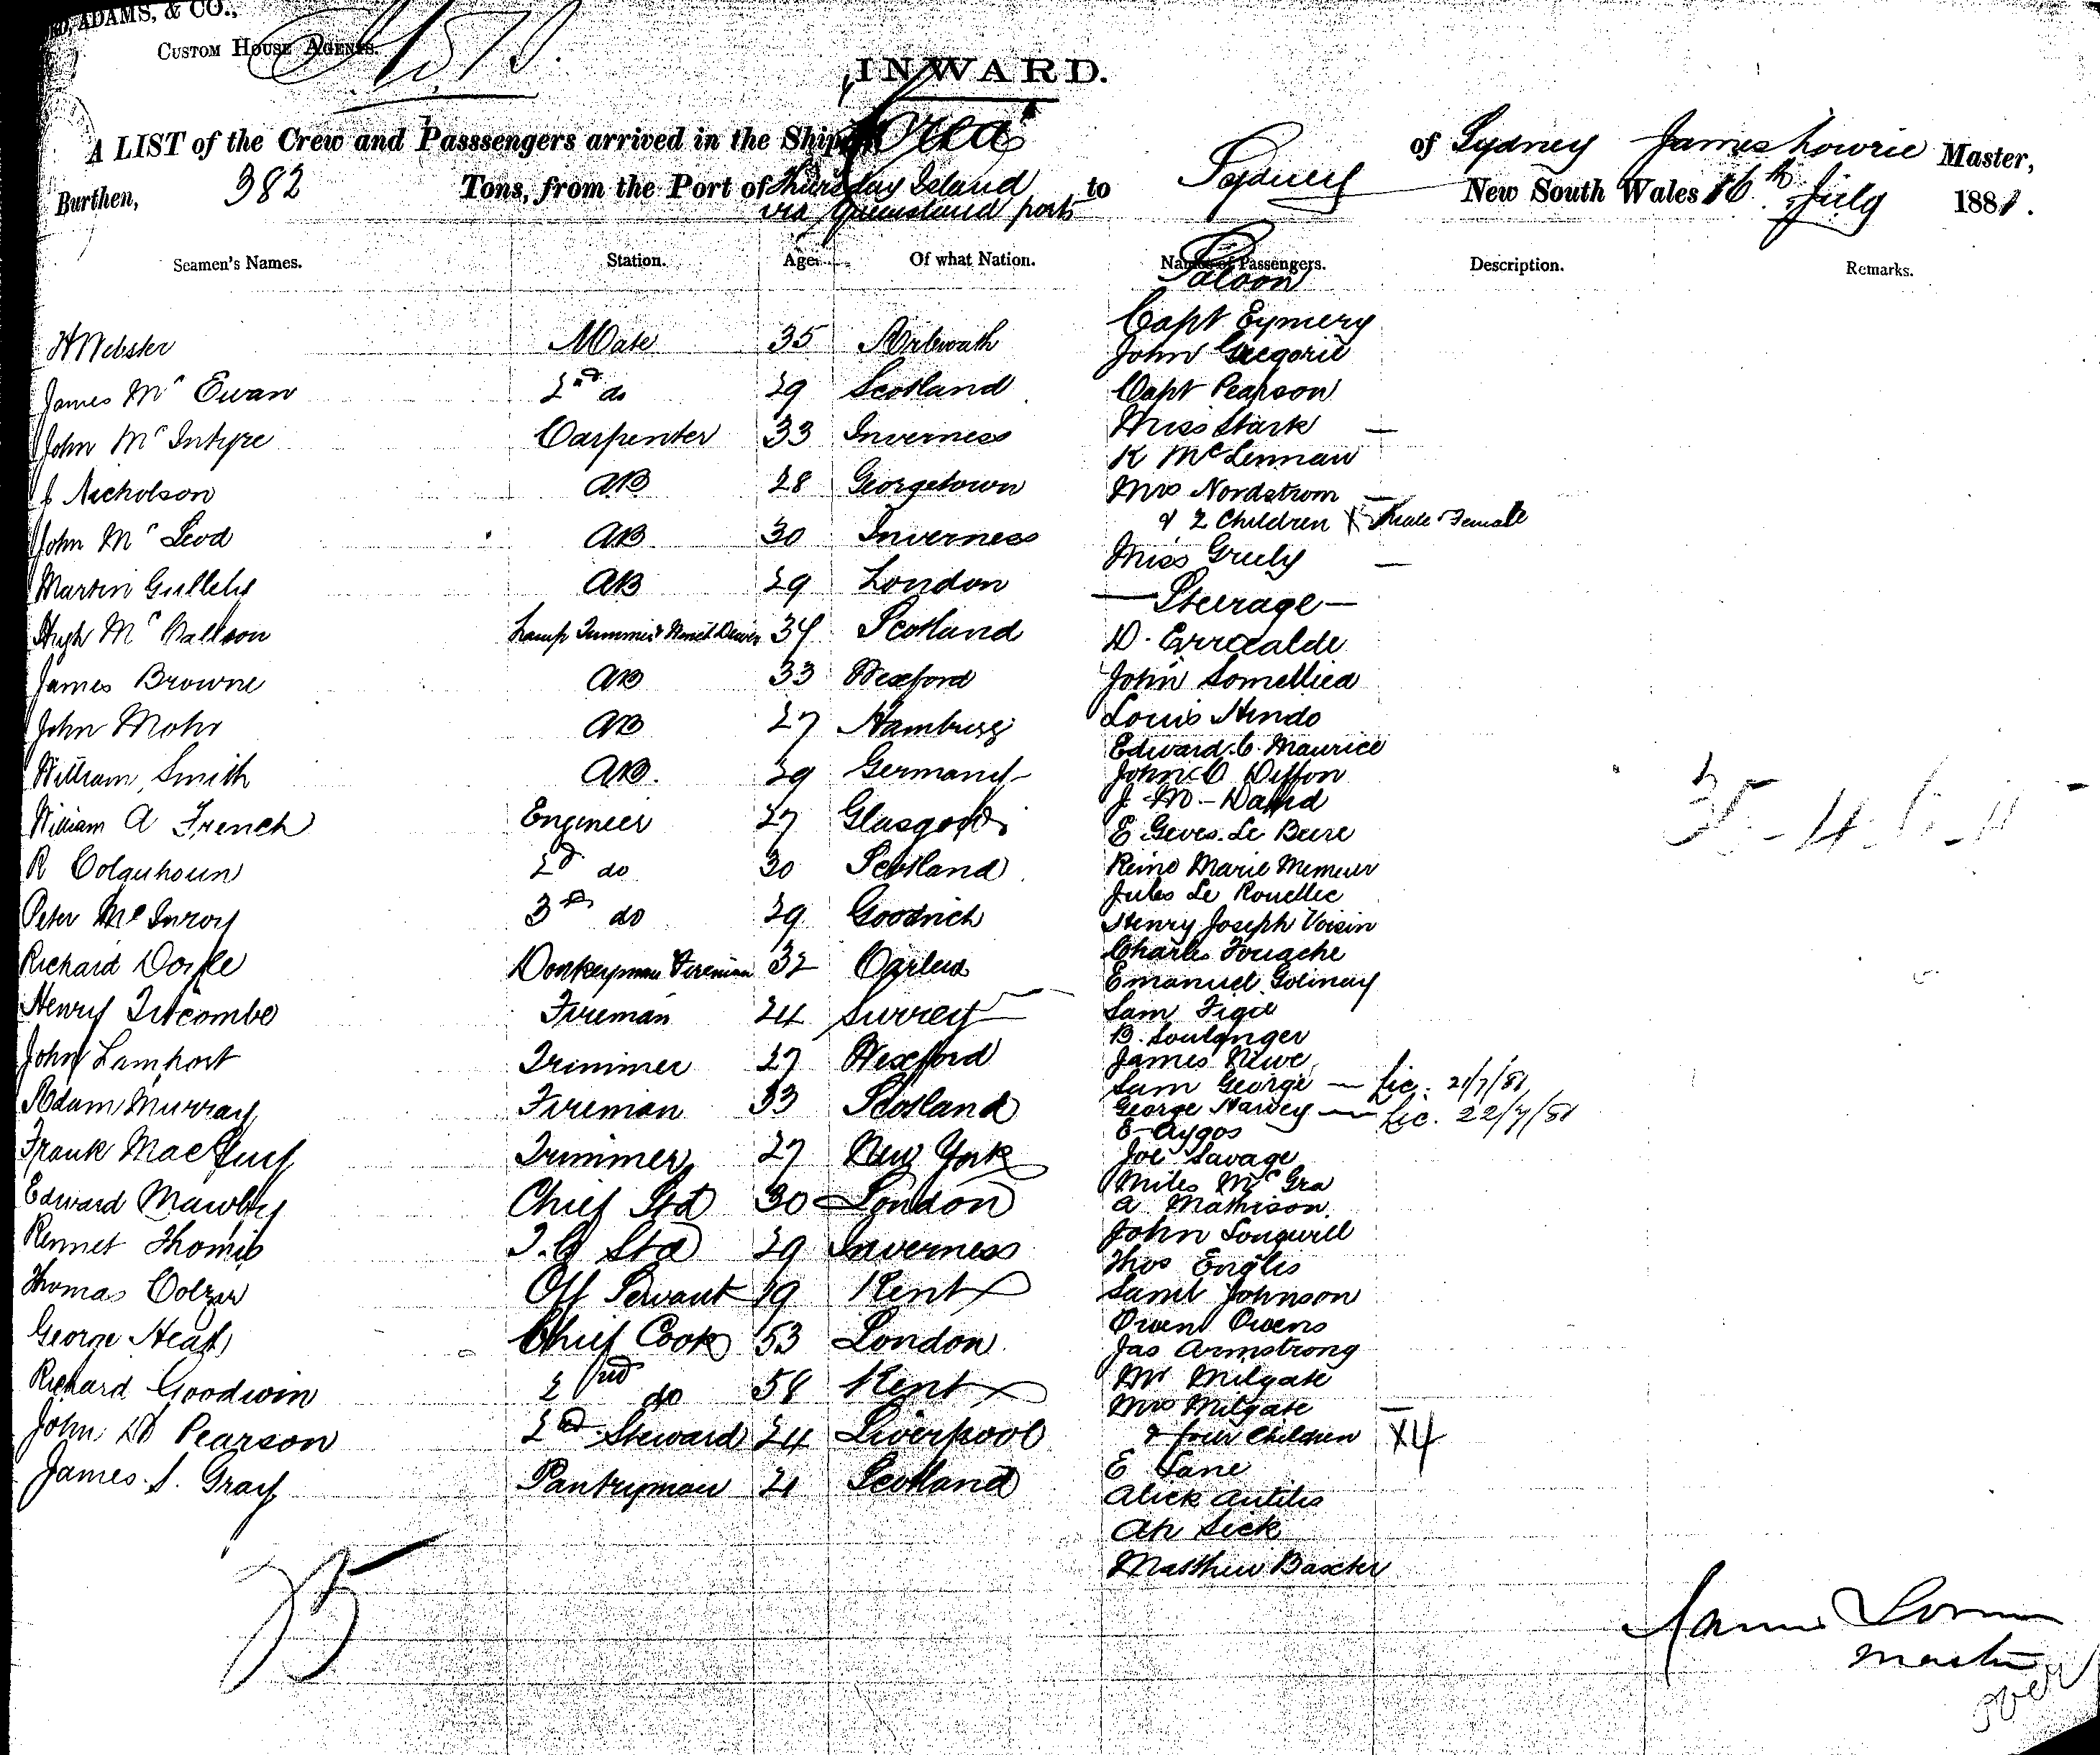 ADAMS, & CO.,
CUSTOM HOUSE AGENTS.
INWARD.
A LIST of the Crew and Passsengers arrived in the Ship Corea of Sydney James Lowrie Master,
Burthen, 382 Tons, from the Port of Thursday Island to Sydney New South Wales 16th July 1881.
via Queensland ports
Seamen's Names. Station. Age. Of what Nation. Names of Passengers. Description. Remarks.
H Webster Mate 35 Arbroath
James Mc Ewan 2nd do 29 Scotland
John Mc Intyre Carpenter 33 Inverness
J Nicholson AB 28 Georgetown
John Mc Leod AB 30 Inverness
Martin AB 29 London
Hugh Mc Lamp Trimmer 34 Scotland
James Browne AB 33 Wexford
John Mohr AB 27 Hamburg
William Smith AB. 29 Germany
William A French Engineer 27 Glasgow
R Colquhoun 2d do 30 Scotland
Peter McInroy 3rd do 29
Richard Doyle Donkeyman Fireman 32
Henry Titcombe Fireman 24 Surrey
John Lamport Trimmer 27 Wexford
Adam Murray Fireman 33 Scotland
Frank Trimmer 27 New York
Edward Mawbey Chief Std 30 London
Rennet Thomis Std 29 Inverness
Thomas Off Servant 19 Kent
George Heath Chief Cook 53 London
Richard Goodwin 2nd do 58 Kent
John Pearson 2nd Steward 24 Liverpool
James S. Gray Pantryman 21 Scotland
25
Saloon
Capt Eymery
John Gregorie
Capt Pearson
Miss Stark —
K McLennan
Mrs Nordstrom —
& 2 Children X Male Female
Miss Greely —
— Steerage —
D. Errecalde
John
Louis Hindo
Edward C. Maurice
John C Diffon
J. M. David
E Geves. Le Beere
Reine Marie
Jules Le Rouellec
Henry Joseph Voisin
Charles Fouache
Emanuel Golinay
Sam
B. Soulanger
James
Sam George — Lic. 21/7/81
George Harvey — Lic. 22/7/81
E Aygos
Joe Savage
Miles Mc Gra
A Mathison
John Longwill
Thos Englis
Saml Johnson
Owen Owens
Jas Armstrong
Mr Milgate
Mrs Milgate —
& four Children X4
E Lane
Alick
Ah Sick
Matthew Baxter
James Lowrie
Master
over